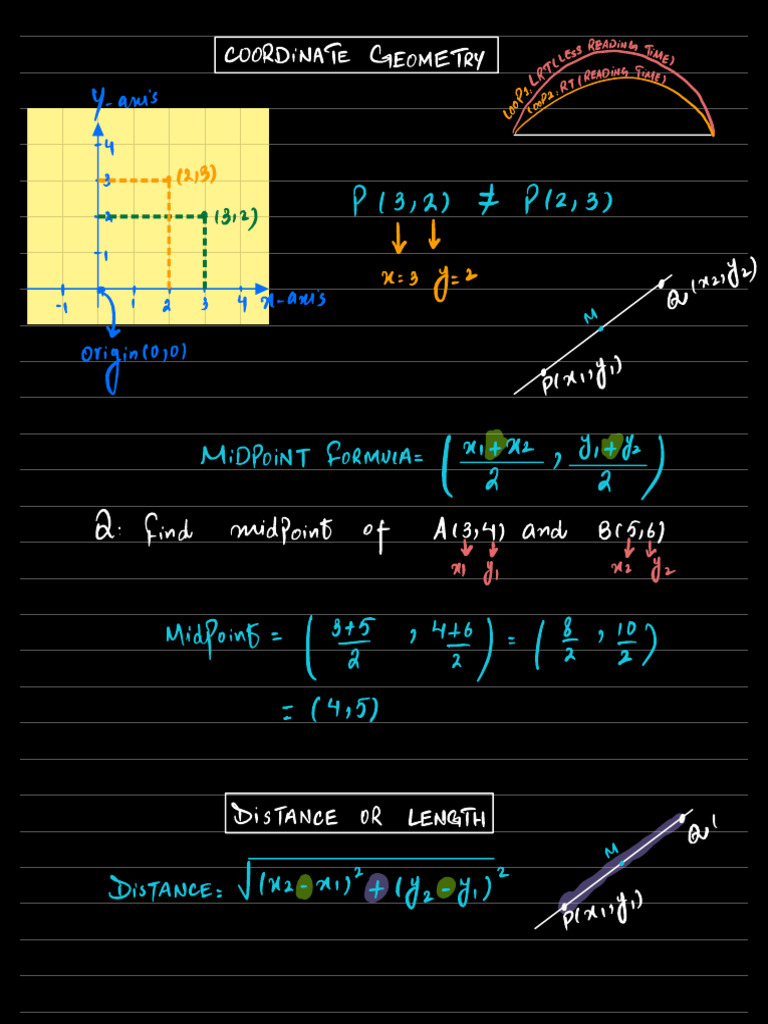 COORDINATE GEOMETRY
LOOP1: LRT(LESS READING TIME)
LOOP2: RT(READING TIME)
Y-axis
4
3
(2,3)
2
(3,2)
1
-1 1 2 3 4 x-axis
Origin(0,0)
P(3,2) ≠ P(2,3)
x=3 y=2
Q(x2,y2)
M
P(x1,y1)
MIDPOINT FORMULA= (x1+x2/2, y1+y2/2)
Q: find midpoint of A(3,4) and B(5,6)
x1 y1 x2 y2
Midpoint = (3+5/2, 4+6/2) = (8/2, 10/2)
= (4,5)
DISTANCE OR LENGTH
Q
M
P(x1,y1)
DISTANCE: √(x2-x1)²+(y2-y1)²